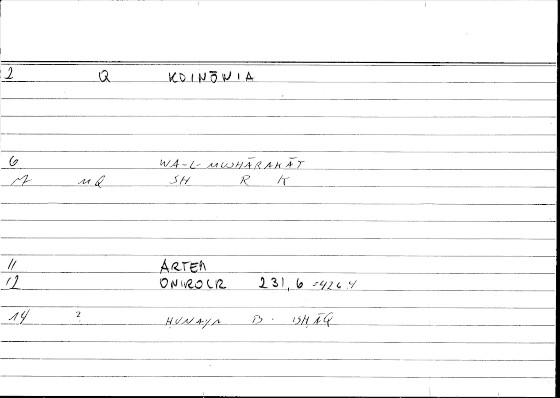 2 Q KOINŌNIA
6 WA-L-MUSHĀRAKĀT
7 MQ SH R K
11 ARTEM
12 ONIROCR 231,6 =426 4
14 ? HUNAYN B. ISHĀQ